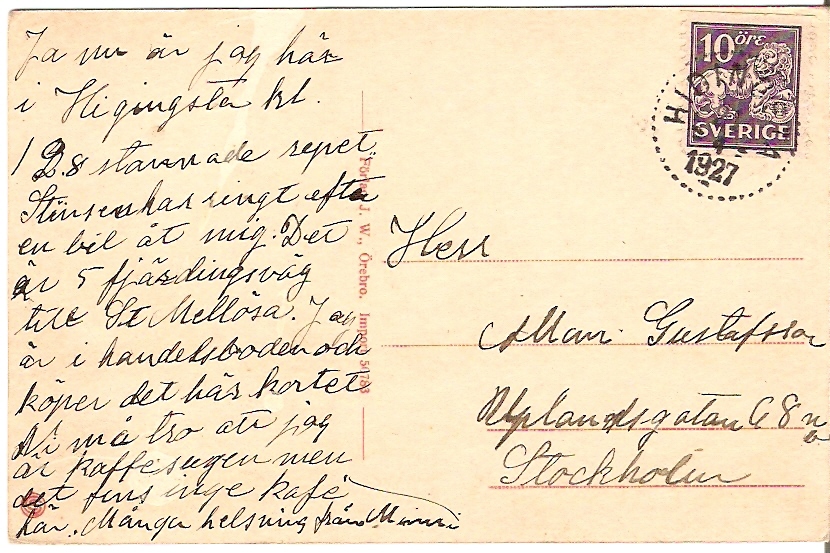 Ja nu är jag här
i Higingsta kl.
1 28 stannade repet
Stinsen har ringt efter
en bil åt mig. Det
är 5 fjärdingsväg
till St Mellösa. Jag
är i handelsboden och
köper det här kortet
Ni må tro att jag
är kaffesugen men
det fins inge kafé
här. Många helsning från Mimmi
Förlag J. W., Örebro. Import 56783
10 öre
SVERIGE
4
1927
Herr
Allan Gustafsson
Uplandsgatan 68
Stockholm